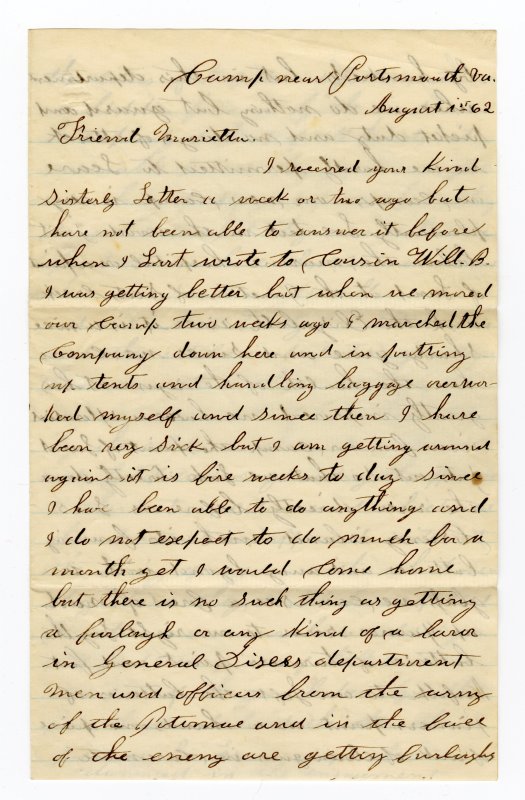 Camp near Portsmouth Va.
August 1st 62
Friend Marietta
I received your kind
Sisterly Letter a week or two ago but
have not been able to answer it before
when I Last wrote to Cousin Will. B.
I was getting better but when we moved
our Camp two weeks ago I marched the
Company down here and in putting
up tents and handling baggage overwor-
ked myself and since then I have
been very sick but I am getting around
again it is five weeks to day since
I have been able to do anything and
I do not exspect to do much for a
month yet I would Come home
but there is no such thing as getting
a furlough or any kind of a favor
in General Dixs department
Men and officers from the army
of the Potomac and in the face
of the enemy are getting furloughs